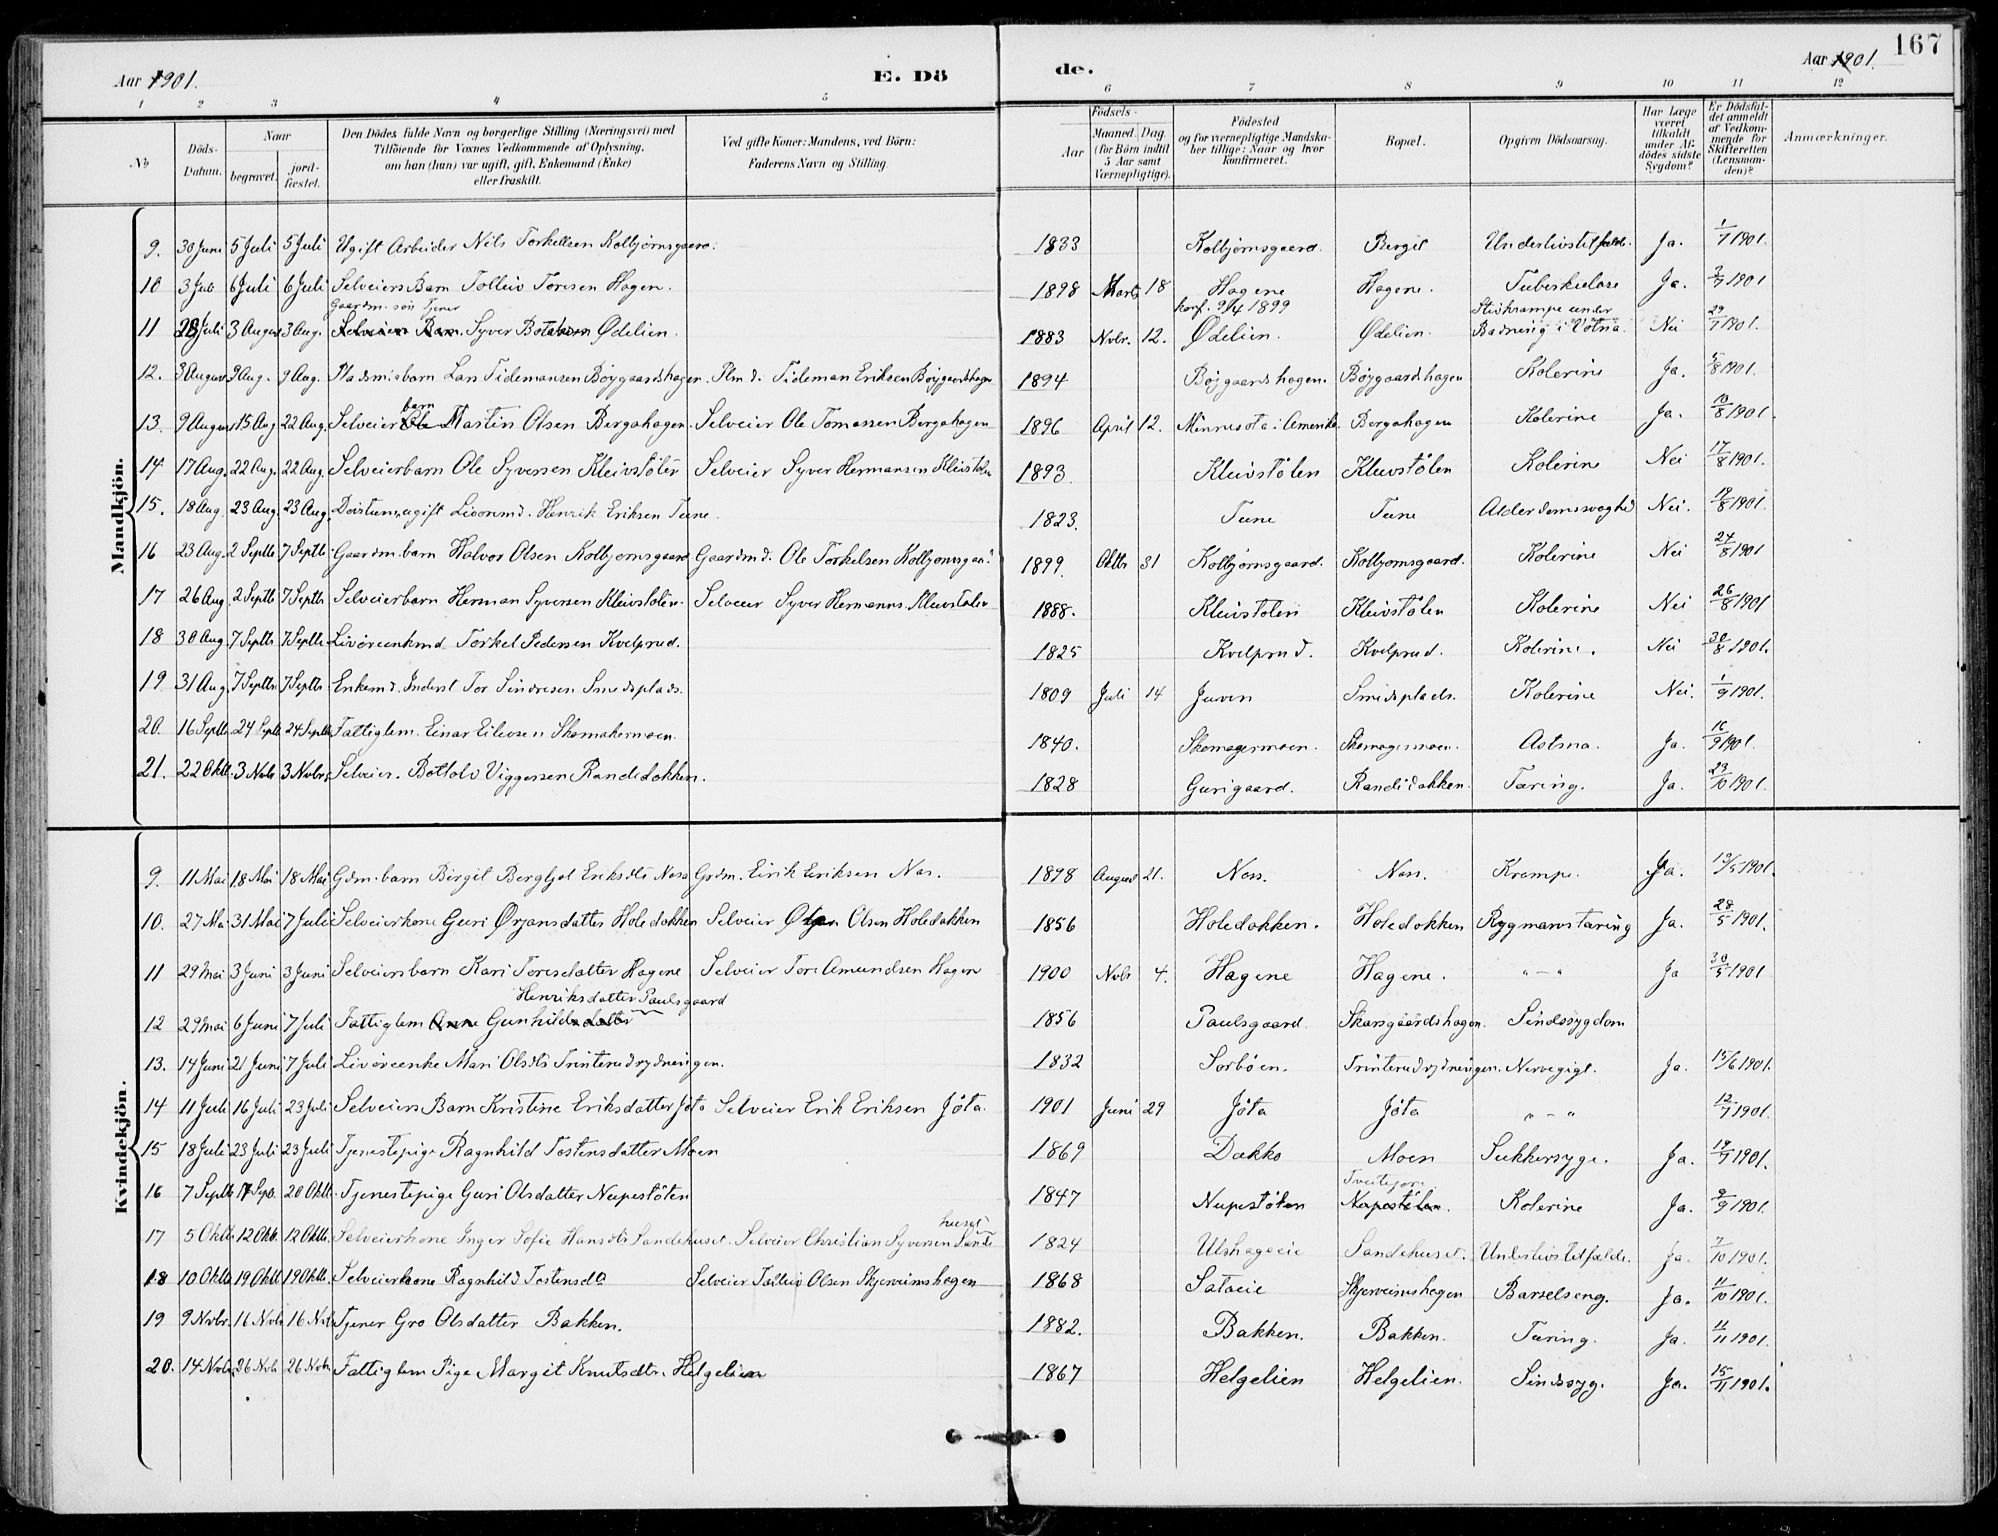 Aar 1901.
E. Dö
de.
Aar 1901.
167
1 2 3 4 5 6 7 8 9 10 11 12
No
Döds-Datum.
Naar
begravet.
jord-fæstet.
Den Dödes fulde Navn og borgerlige Stilling (Næringsvei) med Tilföiende for Voxnes Vedkommende af Oplysning, om han (hun) var ugift, gift, Enkemand (Enke) eller fraskilt.
Ved gifte Koner: Mandens, ved Börn: Faderens Navn og Stilling.
Födsels-
Aar
Maaned. Dag.
(for Börn indtil 5 Aar samt Værnepligtige).
Födested og for værnepligtige Mandskaber tillige: Naar og hvor konfirmeret.
Bopæl.
Opgiven Dödsaarsag.
Har Læge været tilkaldt under Afdödes sidste Sygdom?
Er Dödsfaldet anmeldt af Vedkommende for Skifteretten (Lensmanden)?
Anmærkninger.
Mandkjön.
9. 30 Juni 5 Juli 5 Juli Ugift Arbeider Nils Torkelsen Kolbjørnsgaard. 1833 Kolbjørnsgaard. Bergil Underlivstilfælde. Ja. 1/7 1901.
10 3 Juli 6 Juli 6 Juli Selveiers Barn Tolleiv Toresen Hagen. 1898 Marts 18 Hagene Hagene. Tuberkulose Ja. 3/7 1901
Gaardm. søn Tjener konf. 9/4 1899 Stivkrampe under
11 28 Juli 3 August 3 Aug. Selveier Barn. Syver Botolvsen Ødelien. 1883 Novbr. 12. Ødelien. Ødelien. Badning i Votna. Nei 29/7 1901.
12. 3 August 9 Aug. 9 Aug. Pladsmsbarn Lars Tidemansen Bøygaardshagen. Plmd. Tideman Eriksen Bøygaardshagen 1894 Bøygaardshagen. Bøygaardshagen Kolerine Ja. 5/8 1901.
13. 9 August 15 Aug 22 Aug. Selveier barn Ole Martin Olsen Bergahagen. Selveier Ole Tomassen Bergahagen 1896 April 12. Minnesota i Amerika. Bergahagen Kolerine Ja. 10/8 1901.
14 17 Aug. 22 Aug. 22 Aug. Selveierbarn Ole Syversen Kleivstølen Selveier Syver Hermansen Kleivstølen 1893. Kleivstølen Kleivstølen Kolerine Nei 17/8 1901.
15. 18 Aug. 23 Aug. 23 Aug. Døvstum, ugift Livøremd. Henrik Eriksen Tune. 1823. Tune Tune Alderdomssvaghed Nei. 19/8 1901.
16 23 Aug. 2 Septb 7 Septb. Gaardm. barn Halvor Olsen Kolbjørnsgaard Gaardmd. Ole Torkelsen Kolbjørnsgaard 1899. Oktbr 31 Kolbjørnsgaard. Kolbjørnsgaard. Kolerine Nei 24/8 1901
17 26 Aug. 2 Septb 7 Septb Selveierbarn Herman Syversen Kleivstølen. Selveier Syver Hermanns. Kleivstølen 1888. Kleivstølen Kleivstølen Kolerine Nei 26/8 1901
18 30 Aug. 7 Septb 7 Septb. Livøreenkmd Torkel Pedersen Kvelprud. 1825 Kvelprud. Kvelprud. Kolerine. Nei 30/8 1901.
19. 31 Aug. 7 Septb 7 Septb Enkemd. Inderst Tor Sindresen Smedsplads. 1809 Juli 14 Juven Smedsplads. Kolerine Nei. 1/9 1901.
20. 16 Septb. 24 Septb 24 Septb Fattiglem. Einar Eilevsen Skomakermoen. 1840. Skomagermoen. Skomagermoen. Astma. Ja. 16/9 1901.
21. 22 Oktb. 3 Nvbr 3 Nvbr. Selveier. Bottolv Viggersen Randidokken. 1828 Gurigaard. Randidokken. Tæring. Ja. 23/10 1901.
Kvindekjön.
9. 11 Mai 18 Mai 18 Mai Gdm. barn Birgit Bergljot Eriksdtr Næss Grdm. Eirik Eriksen Næs. 1898 August 21. Næss. Næss. Krampe. Ja. 12/5 1901.
10. 27 Mai 31 Mai 7 Juli Selveierkone Guri Ørjansdatter Holedokken Selveier Olsen Holedokken 1856 Holedokken. Holedokken Rygmarvstæring Ja. 28/5 1901.
11 29 Mai 3 Juni 3 Juni Selveiersbarn Kari Toresdatter Hagene Selveier Tore Amundsen Hagen 1900 Nvbr 4. Hagene Hagene. "-" Ja 30/5 1901
Henriksdatter Paulsgaard
12 29 Mai 6 Juni 7 Juli Fattiglem Anne Gunhildsdatter 1856 Paulsgaard. Skarsgaardshagen. Sindssygdom
13. 14 Juni 21 Juni 7 Juli Livøreenke Mari Olsdtr Trinterudrydningen. 1832 Sørbøen. Trinterudrydningen. Nervegigt. Ja. 15/6 1901.
14 11 Juli 16 Juli 23 Juli Selveiers Barn Kristine Eriksdatter Jøta Selveier Erik Eriksen Jøta. 1901 Juni 29 Jøta Jøta "-" 12/7 1901.
15 18 Juli 23 Juli 23 Juli Tjenestepige Ragnhild Tostensdatter Moen 1869 Dokko Moen Sukkersyge. Ja. 19/7 1901.
Tveitejore
16 7 Septb 14 Sep. 20 Oktb. Tjenestepige Guri Olsdatter Nupestølen 1847 Nupestølen Nupestølen. Kolerine Ja. 9/9 1901.
huset
17 5 Oktb 12 Oktb. 12 Oktb. Selveierkone Inger Sofie Hansdtr Sandehuset. Selveier Christian Syversen Sande 1824 Ulshageeie Sandehuset. Underlivstilfælde. Ja. 7/10 1901.
18 10 Oktb 19 Oktb 19 Oktb. Selveierkone Ragnhild Tostensda Selveier Tolleiv Olsen Skjerveimshagen 1868 Sataeie Skjerveimshagen Barselseng. Ja. 11/10 1901.
19 9 Nvbr. 16 Nvbr 16 Nvb Tjener Gro Olsdatter Bakken. 1882. Bakken. Bakken. Tæring. Ja. 11/11 1901.
20. 14 Nvbr. 26 Nvb 26 Nvbr. Fattiglem Pige Margit Knutsdtr. Helgelien 1867 Helgelien Helgelien. Sindssyg. Ja. 15/11 1901.